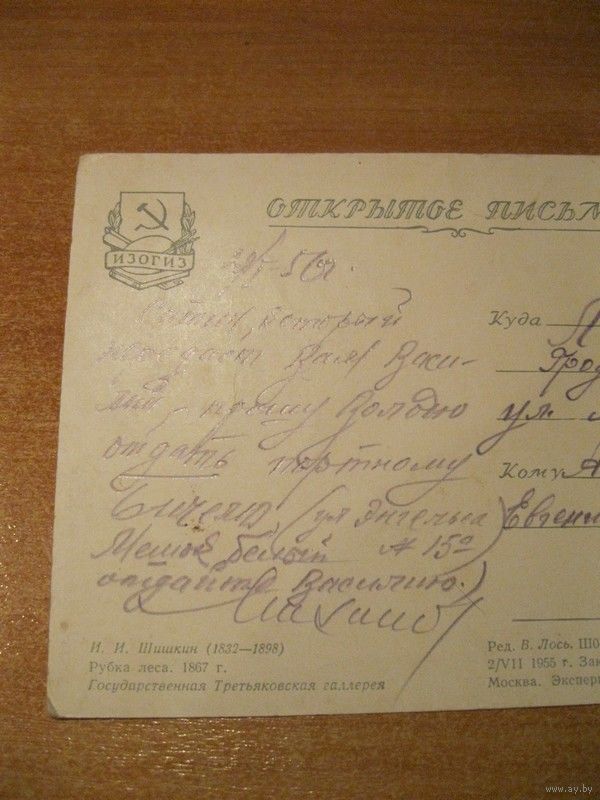 ИЗОГИЗ
ОТКРЫТОЕ ПИСЬМ
56г.
Сатин, который
Вам Васи-
лий, прошу Володю
отдать портному
(ул Энгельса
Мешок белый № 15а
отдайте Василию.)
Куда
ул.
Кому
Евгени
И. И. Шишкин (1832—1898)
Рубка леса. 1867 г.
Государственная Третьяковская галлерея
Ред. В. Лось. Ш0
2/VII 1955 г. Зак
Москва. Экспери
www.ay.by